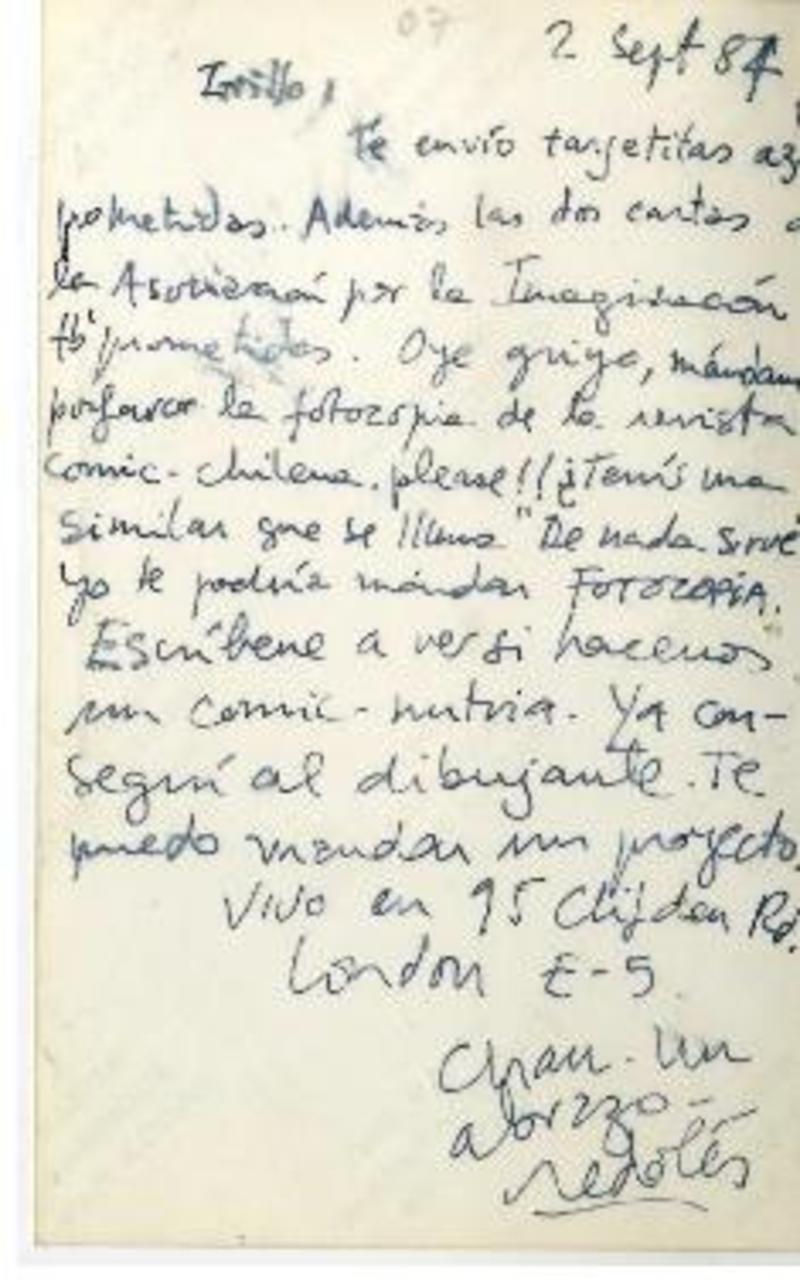 07
2 Sept 84
Te envío targetitas
pometidas. Además las dos cartas
la Asociación por la Imaginación
tb' prometidas. Oye gringo, mándam
porfavor la fotocopia de la revista
comic-chilena. please!! ¿Tenís una
similar que se llama "De nada sirve"
Yo te podría mandar FOTOCOPIA.
Escríbeme a ver si hacemos
un comic-nutria. Ya con-
seguí al dibujante. Te
puedo mandar un proyecto.
Vivo en 95 Clifden Rd.
London E-5.
Chau. Un
abrazo-
redolés